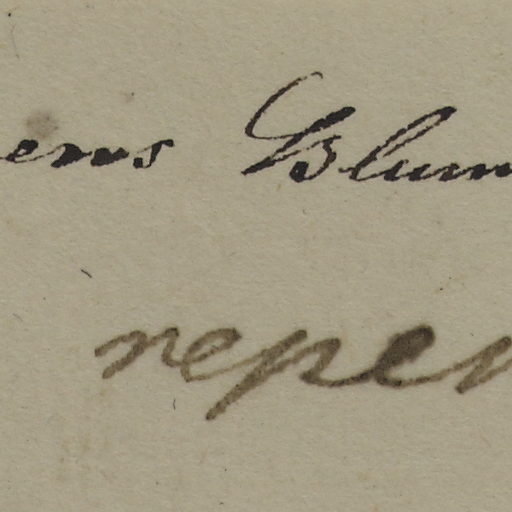 ens Blum
repen